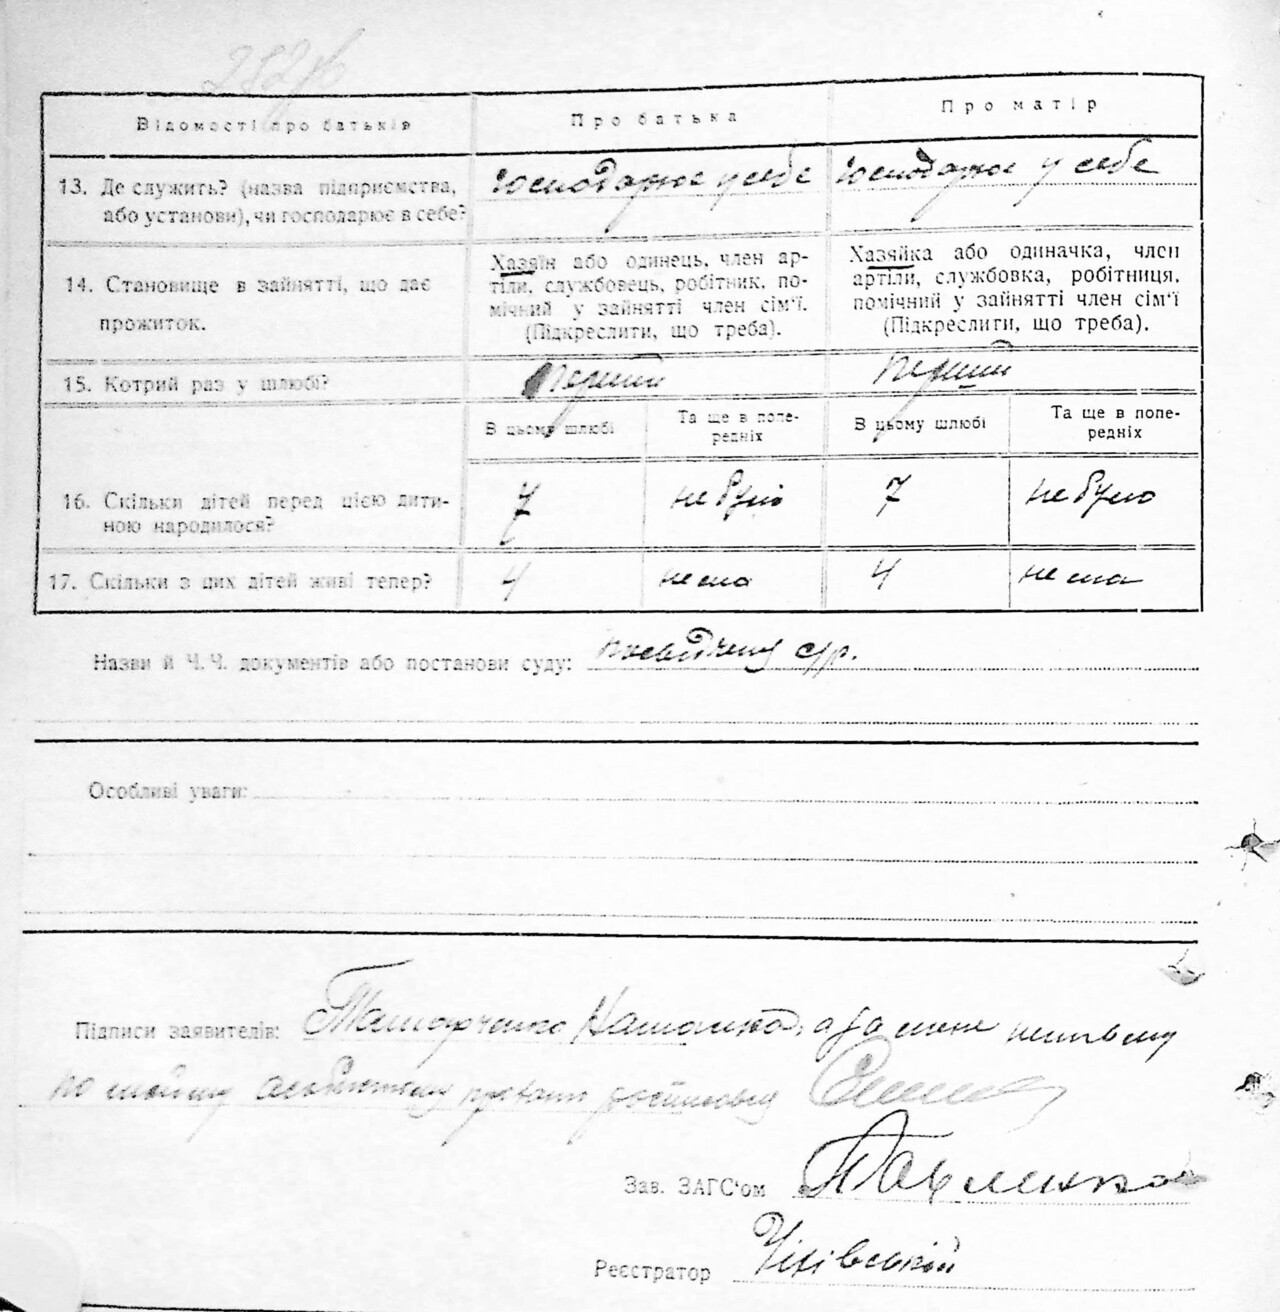 Відомості про батьків
Про батька
Про матір
13. Де служить? (назва підприємства,
або установи), чи господарює в себе?
Господарює у себе
Господарює у себе
14. Становище в зайнятті, що дає
прожиток.
Хазяїн або одинець, член ар-
тіли, службовець, робітник, по-
мічний у зайнятті член сім'ї.
(Підкреслити, що треба).
Хазяйка або одиначка, член
артіли, службовка, робітниця,
помічний у зайнятті член сім'ї
(Підкреслити, що треба).
15. Котрий раз у шлюбі?
Перший
Перший
В цьому шлюбі
Та ще в попе-
редніх
В цьому шлюбі
Та ще в попе-
редніх
16. Скільки дітей перед цією дити-
ною народилося?
7
не було
7
не було
17. Скільки з цих дітей живі тепер?
4
нема
4
нема
Назви й Ч.Ч. документів або постанови суду: с/р.
Особливі уваги:
Підписи заявителів: а за мене
по моїму
Зав. ЗАГС'ом Павленко
Реєстратор